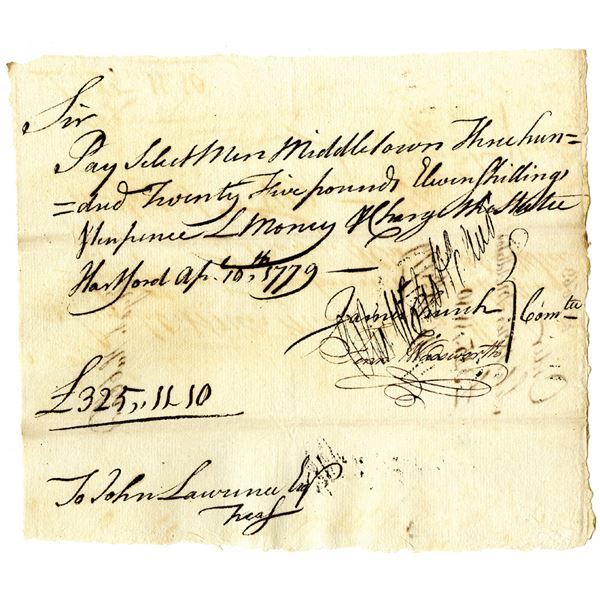 Sir
Pay Select Men Middletown Three hun=
=dred Twenty Five pounds Eleven Shillings
& Ten pence L Money & Charge the State
Hartford Apl. 10th, 1779 —
James Church } Comtee
Fenn Wadsworth
£325,,11,,10
To John Lawrence Esqr
Treasr